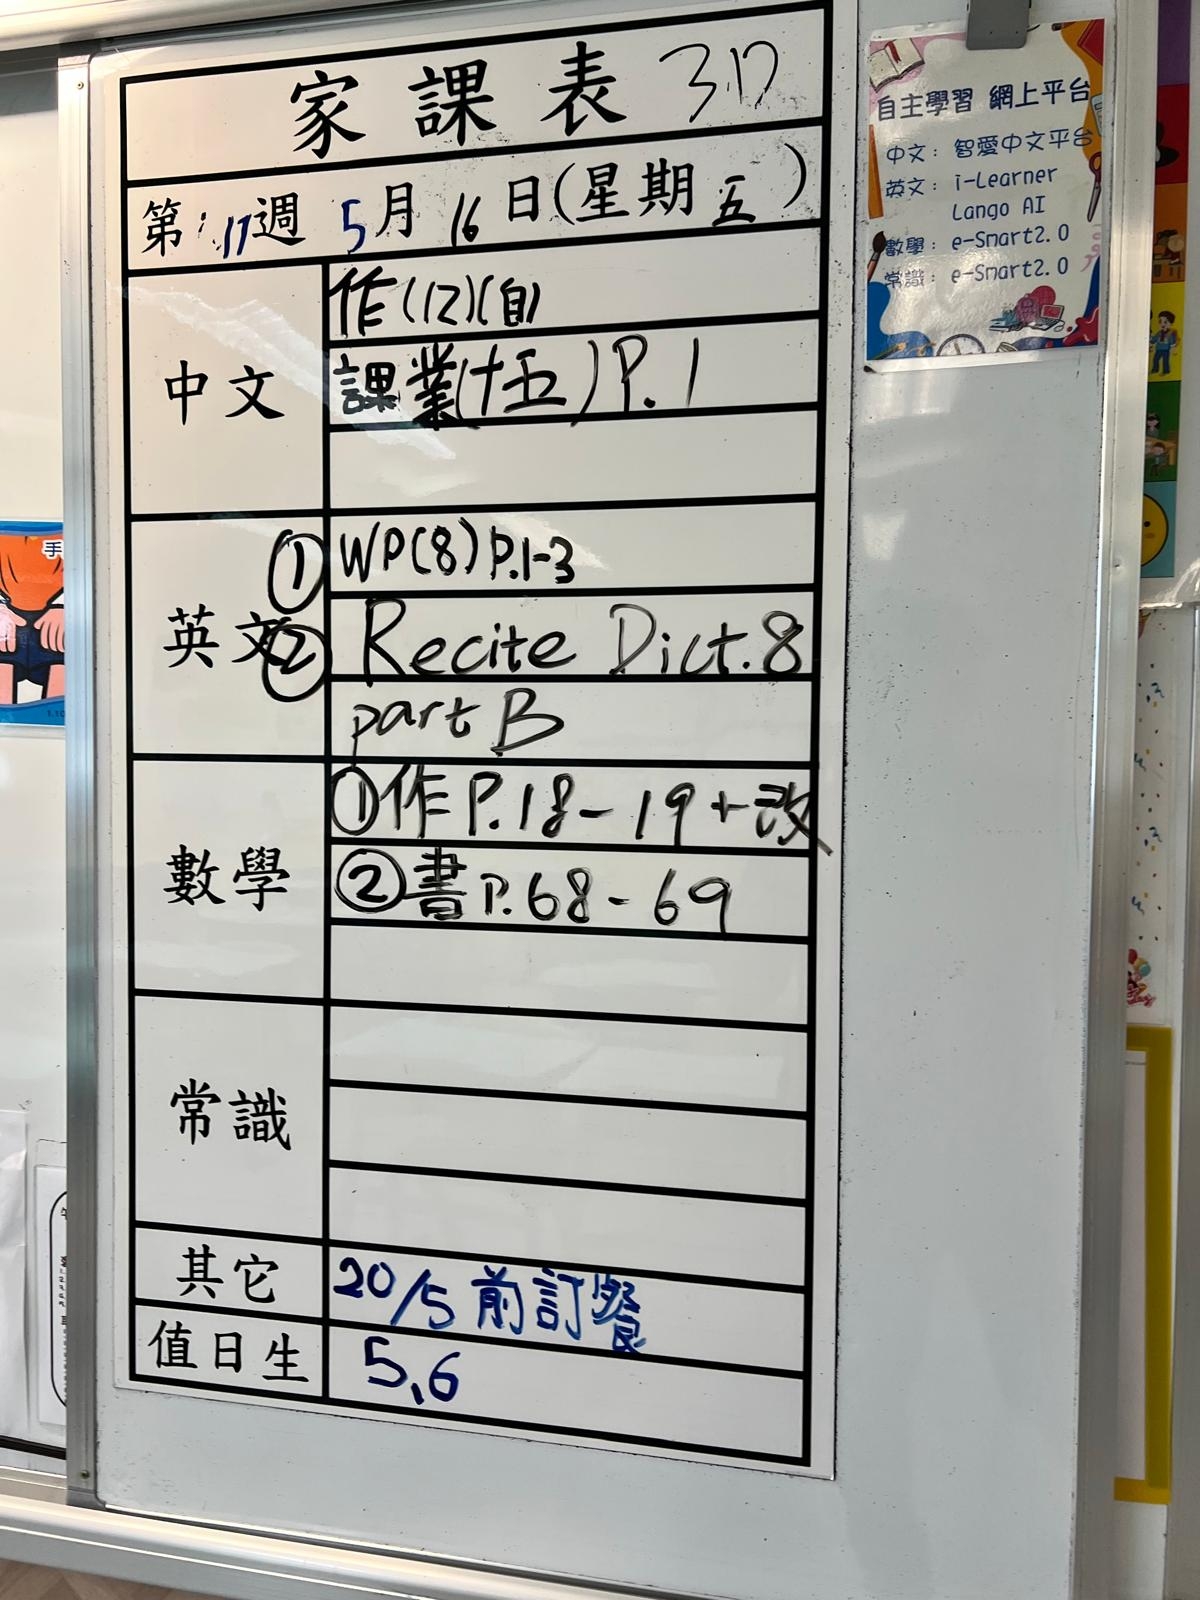 家課表 3D
第17週 5月16日(星期五)
中文
作(12)(自)
課業(十五)P.1
英文
① WP(8) P.1-3
② Recite Dict.8
part B
數學
①作 P.18-19+改
②書 P.68-69
常識
其它
20/5 前訂餐
值日生
5,6
自主學習 網上平台
中文：智愛中文平台
英文：i-Learner
Lango AI
數學：e-Smart2.0
常識：e-Smart2.0
手